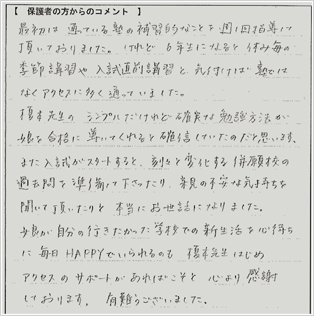 【 保護者の方からのコメント 】
最初は 通っている塾の補習的なことを 週1回指導して
頂いておりました。けれど 6年生になると 休み毎の
季節講習や 入試直前講習と 気付けば 塾では
なく アクセスに多く通っていました。
榎本先生の シンプルだけれど確実な勉強方法が
娘を合格に 導いてくれると確信していたのだと思います。
また入試がスタートすると、刻々と変化する併願校の
過去問を準備して下さったり、親の不安な気持ちを
聞いて頂いたりと 本当に お世話になりました。
娘が自分の行きたかった学校での新生活を心待ち
に 毎日HAPPYでいられるのも 榎本先生はじめ
アクセスのサポートがあればこそと 心より 感謝
しております。 有難うございました。